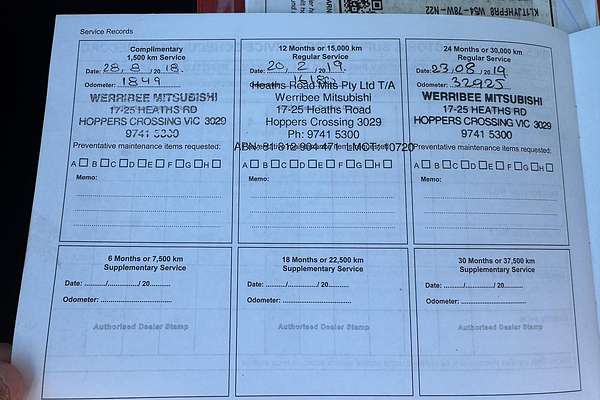 KL1TJYHFPR8 W54-78W-N22
Service Records
Complimentary
1,500 km Service
Date: 28, 8 / 20 18.
Odometer: 1849
WERRIBEE MITSUBISHI
17-25 HEATHS RD
HOPPERS CROSSING VIC 3029
9741 5300
Preventative maintenance items requested:
A B C D E F G H
Memo:
12 Months or 15,000 km
Regular Service
Date: 20, 2, 20 19.
Odometer:
Heaths Road Mits Pty Ltd T/A
Werribee Mitsubishi
17-25 Heaths Road
Hoppers Crossing 3029
Ph: 9741 5300
ABN 81 812 904 471 LMCT: 10720
A B C D E F G H
Memo:
24 Months or 30,000 km
Regular Service
Date: 23, 08 / 20 19
Odometer: 32925
WERRIBEE MITSUBISHI
17-25 HEATHS RD
HOPPERS CROSSING VIC 3029
9741 5300
Preventative maintenance items requested:
A B C D E F G H
Memo:
6 Months or 7,500 km
Supplementary Service
Date: ........./........./ 20.........
Odometer: ....................
Authorised Dealer Stamp
18 Months or 22,500 km
Supplementary Service
Date: ........./........./ 20.........
Odometer: ....................
Authorised Dealer Stamp
30 Months or 37,500 km
Supplementary Service
Date: ........./........./ 20.........
Odometer: ....................
Authorised Dealer Stamp